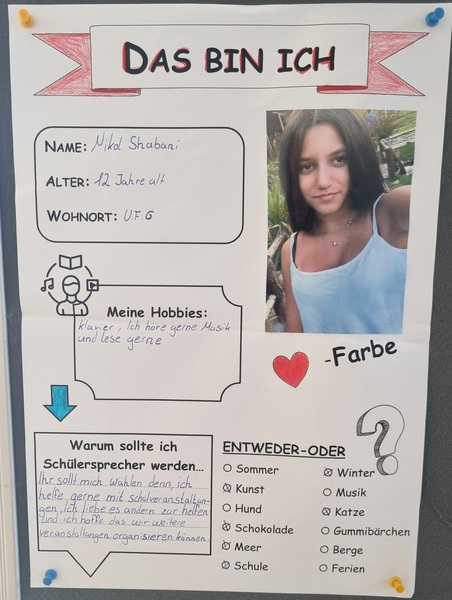 DAS BIN ICH
NAME: Nikol Shabani
ALTER: 12 Jahre alt
WOHNORT: U.F.G
Meine Hobbies:
klavier, Ich höre gerne Musik
und lese gerne
-Farbe
Warum sollte ich
Schülersprecher werden...
Ihr sollt mich wählen denn, ich
helfe gerne mit schulveranstaltun-
gen, ich liebe es andern zur helfen
und ich hoffe das wir weitere
veranstaltungen organisieren können.
ENTWEDER-ODER
Sommer
Winter
Kunst
Musik
Hund
Katze
Schokolade
Gummibärchen
Meer
Berge
Schule
Ferien